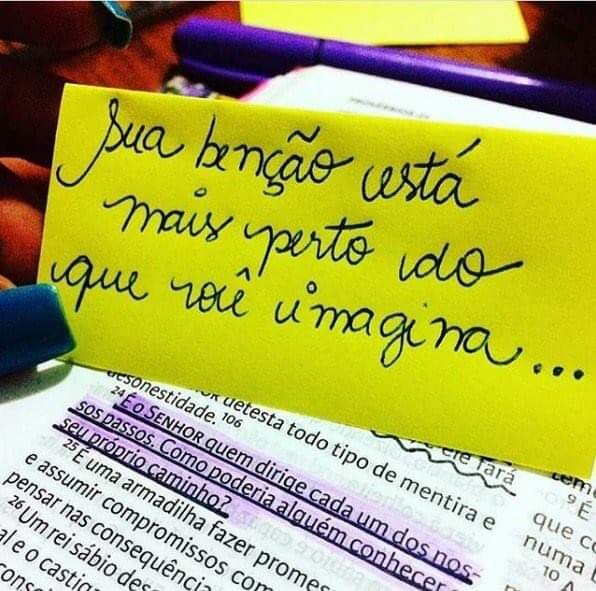 PROVÉRBIOS 21
Sua benção está
mais perto do
que você imagina...
desonestidade. 106
detesta todo tipo de mentira e
24 É o SENHOR quem dirige cada um dos nos-
sos passos. Como poderia alguém conhecer o
seu próprio caminho?
25 É uma armadilha fazer promes
e assumir compromissos com
pensar nas consequência
26 Um rei sábio des
al e o castiga
conse
e ele fará
9 É
que co
numa t
10 A